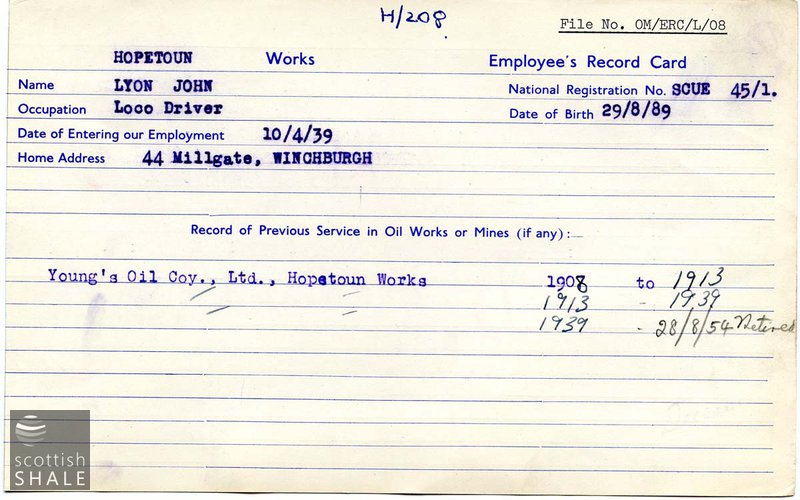 H/208
File No. OM/ERC/L/08
HOPETOUN Works Employee's Record Card
Name LYON JOHN National Registration No. SCUE 45/1.
Occupation Loco Driver Date of Birth 29/8/89
Date of Entering our Employment 10/4/39
Home Address 44 Millgate, WINCHBURGH
Record of Previous Service in Oil Works or Mines (if any):—
Young's Oil Coy., Ltd., Hopetoun Works 1908 to 1913
" " 1913 - 1939
" " 1939 - 28/8/54 Retired
scottish
SHALE